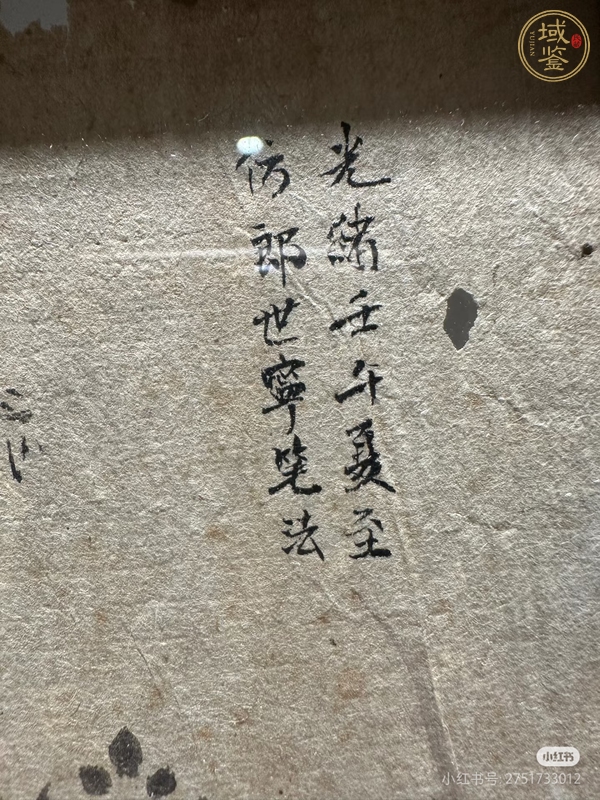 光緒壬午夏至
仿郎世寧筆法
域鑒
YUJIAN
小红书
小红书号: 2751733012